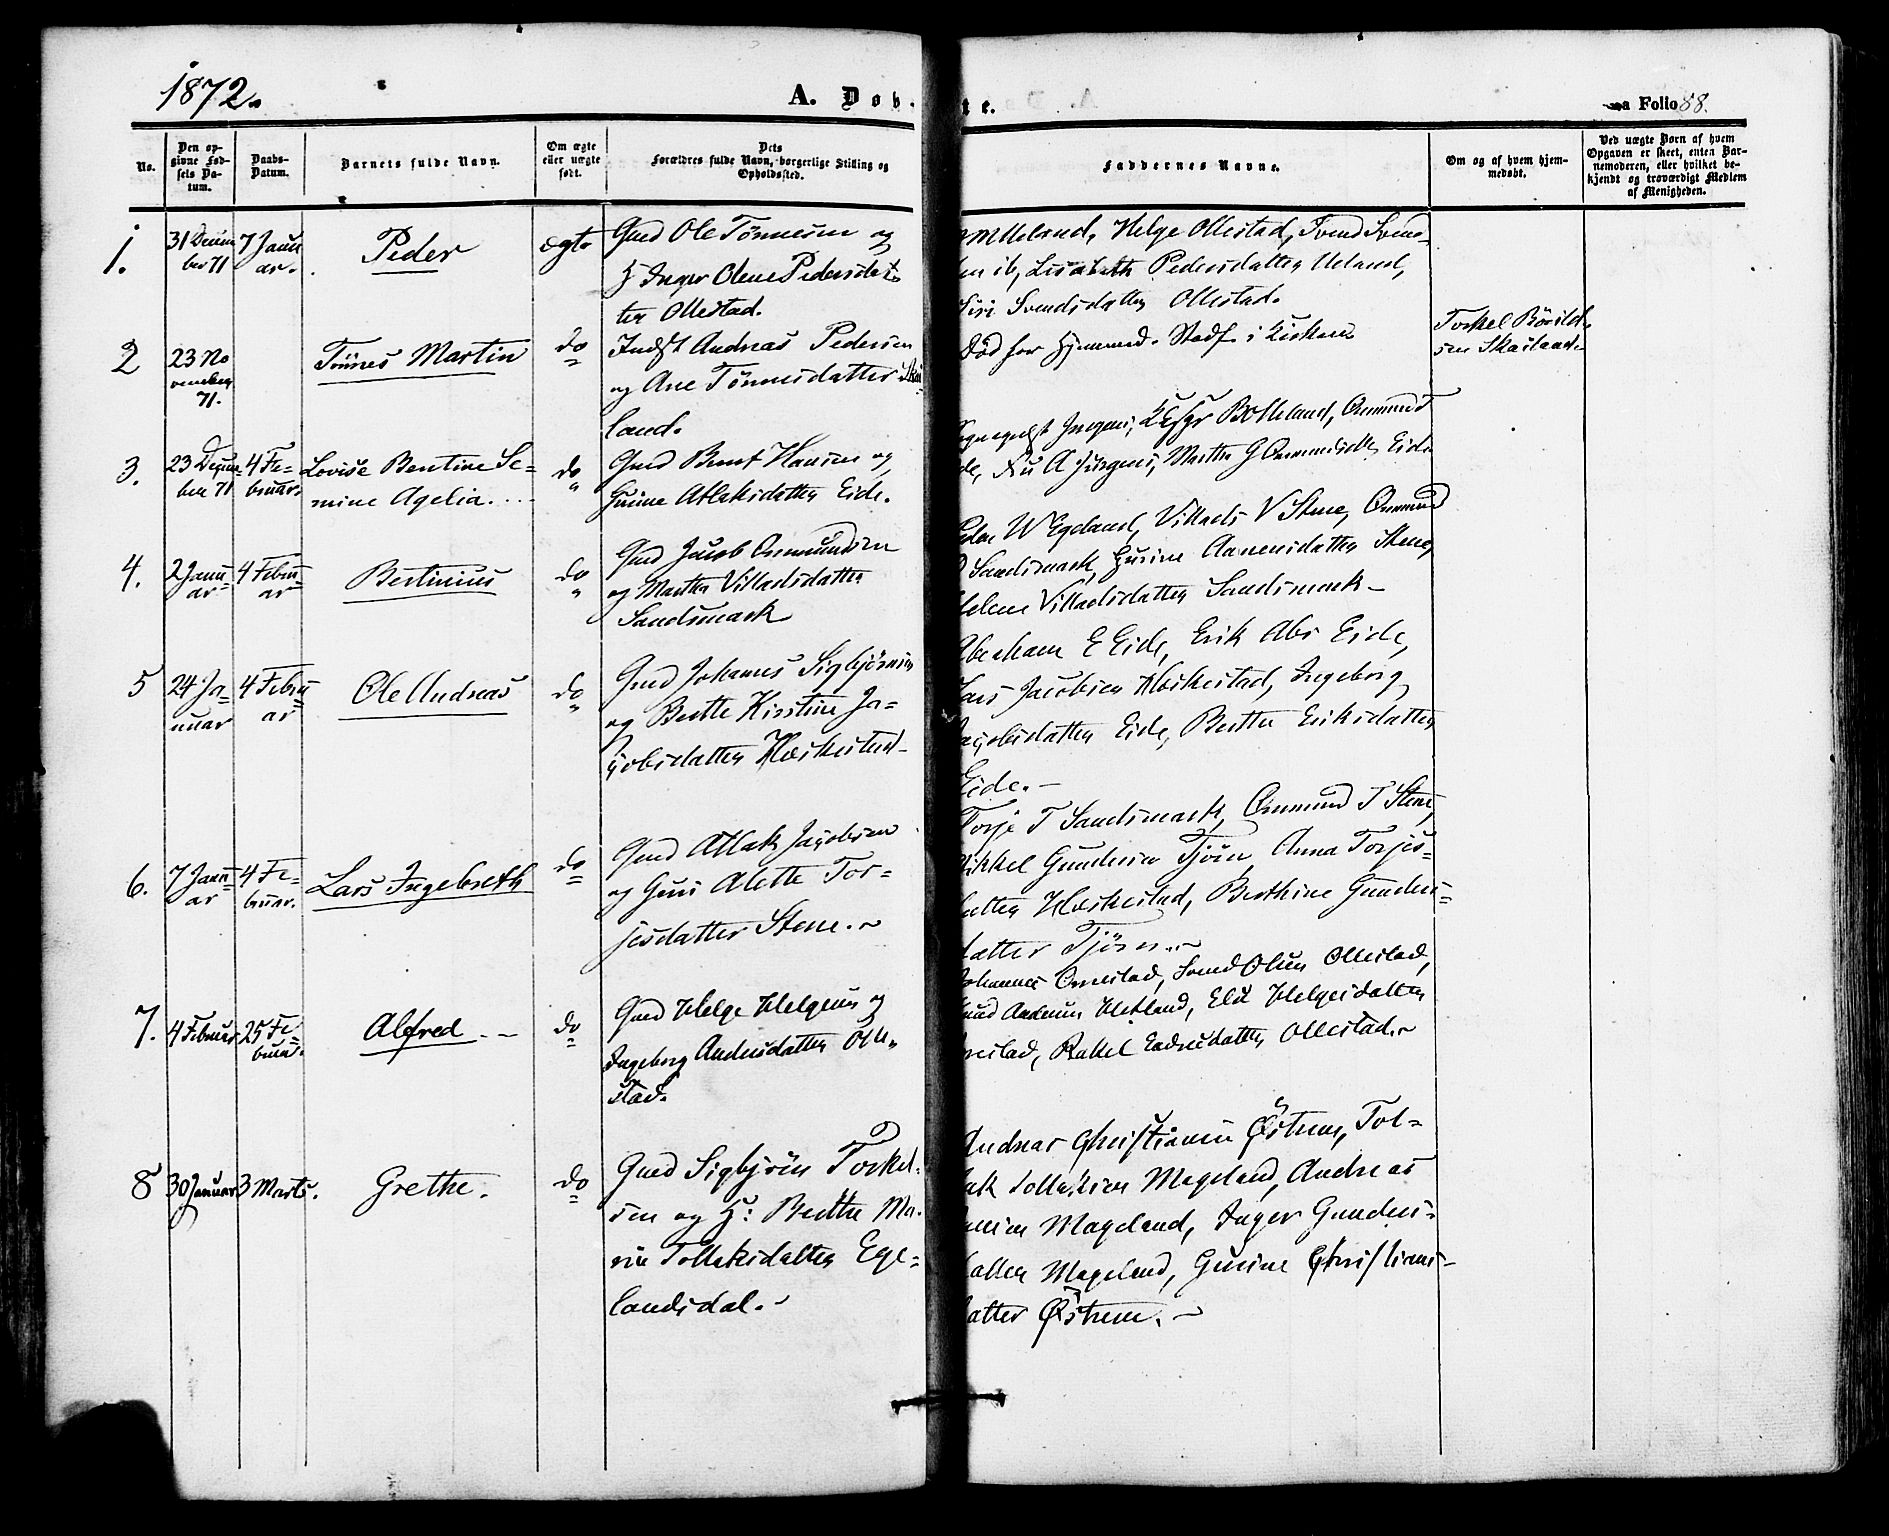 1872.
A. Døb.
te.
Folio 88.
No.
Den op-
givne Fød-
sels Da-
tum.
Daabs-
Datum.
Barnets fulde Navn.
Om ægte
eller uægte
født.
Dets
Forældres fulde Navn, borgerlige Stilling og
Opholdssted.
Faddernes Navne.
Om og af hvem hjem-
medøbt.
Ved uægte Børn af hvem
Opgaven er skeet, enten Bar-
nemoderen, eller hvilket be-
kjendt og troværdigt Medlem
af Menigheden.
1.
31 Decem
ber 71
7 Janu
ar.
Peder
ægte
Gmd Ole Tønnesen og
H Inger Olene Pedersdat
ter Ollestad.
Ueland, Helge Ollestad, Svend Svend-
sen ib, Lisabeth Pedersdatter Ueland,
Siri Svendsdatter Ollestad.
2
23 No
vember
71.
Tönnes Martin
do
Indst Andreas Pedersen
og Ane Tönnesdatter Skai
land.
Död før Hjemmed. Stadf. i Kirken
Torkel Bövild
sen Skailand
3.
23 Decem
ber 71
4 Fe-
bruar.
Lovise Bentine Se-
mine Agelia.
do
Gmd Bernt Hansen og
Gurine Atlaksdatter Eide.
Jörgens, Ueland, Ommund
A Jürgens, Marthe G Ommundsdtr Eide
4.
2 Janu
ar
4 Febru
ar
Bertinius
do
Gmd Jacob Ommundsen
og Marthe Villadsdatter
Sandsmark
Peder W Egeland, Villads V Stene, Ommund
Sandsmark, Gurine Aanensdatter Stene,
Helene Villadsdatter Sandsmark
5
24 Ja-
nuar
4 Febru
ar
Ole Andreas
do
Gmd Johannes Sigbjörnsen
og Berthe Kirstine Ja-
cobsdatter Hæskestad
Abraham E Eide, Erik Abr Eide,
Lars Jacobsen Hæskestad, Ingeborg
Jacobsdatter Eide, Berthe Eriksdatter
Eide.
6.
7 Janu
ar
4 Fe-
bruar.
Lars Ingebreth
do
Gmd Atlak Jacobsen
og Guri Alette Tor-
jesdatter Stene.
Torje T Sandsmark, Ommund T Stene,
Mikkel Gundersen Tjörn, Anna Torjes-
datter Hæskestad, Berthine Gunders-
datter Tjörn.
7.
4 Februar
25 Fe-
bruar.
Alfred
do
Gmd Helge Helgesen og
Ingeborg Andersdatter Olle-
stad.
Johannes Omestad, Svend Olsen Ollestad,
Andersen Hetland, Elen Helgesdatter
Rakel Endresdatter Ollestad.
8
30 Januar
3 Marts.
Grethe.
do
Gmd Sigbjörn Torkel-
sen og H: Berthe Ma-
rie Tollaksdatter Ege-
landsdal.
Andreas Christiansen Östrem, Tol-
lak Tollaksen Mageland, Andreas
Mageland, Inger Gunders-
datter Mageland, Gurine Christians-
datter Östrem.